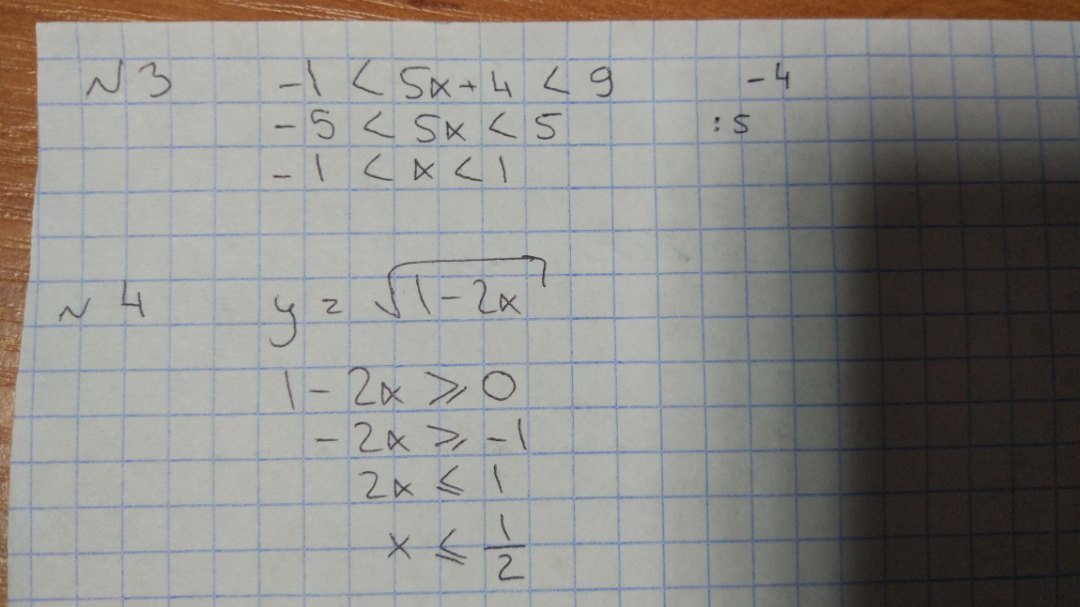 N3 -1 < 5x+4 < 9 -4
-5 < 5x < 5 :5
-1 < x < 1
N4 y = √(1-2x)
1-2x ⩾ 0
-2x ⩾ -1
2x ⩽ 1
x ⩽ 1/2